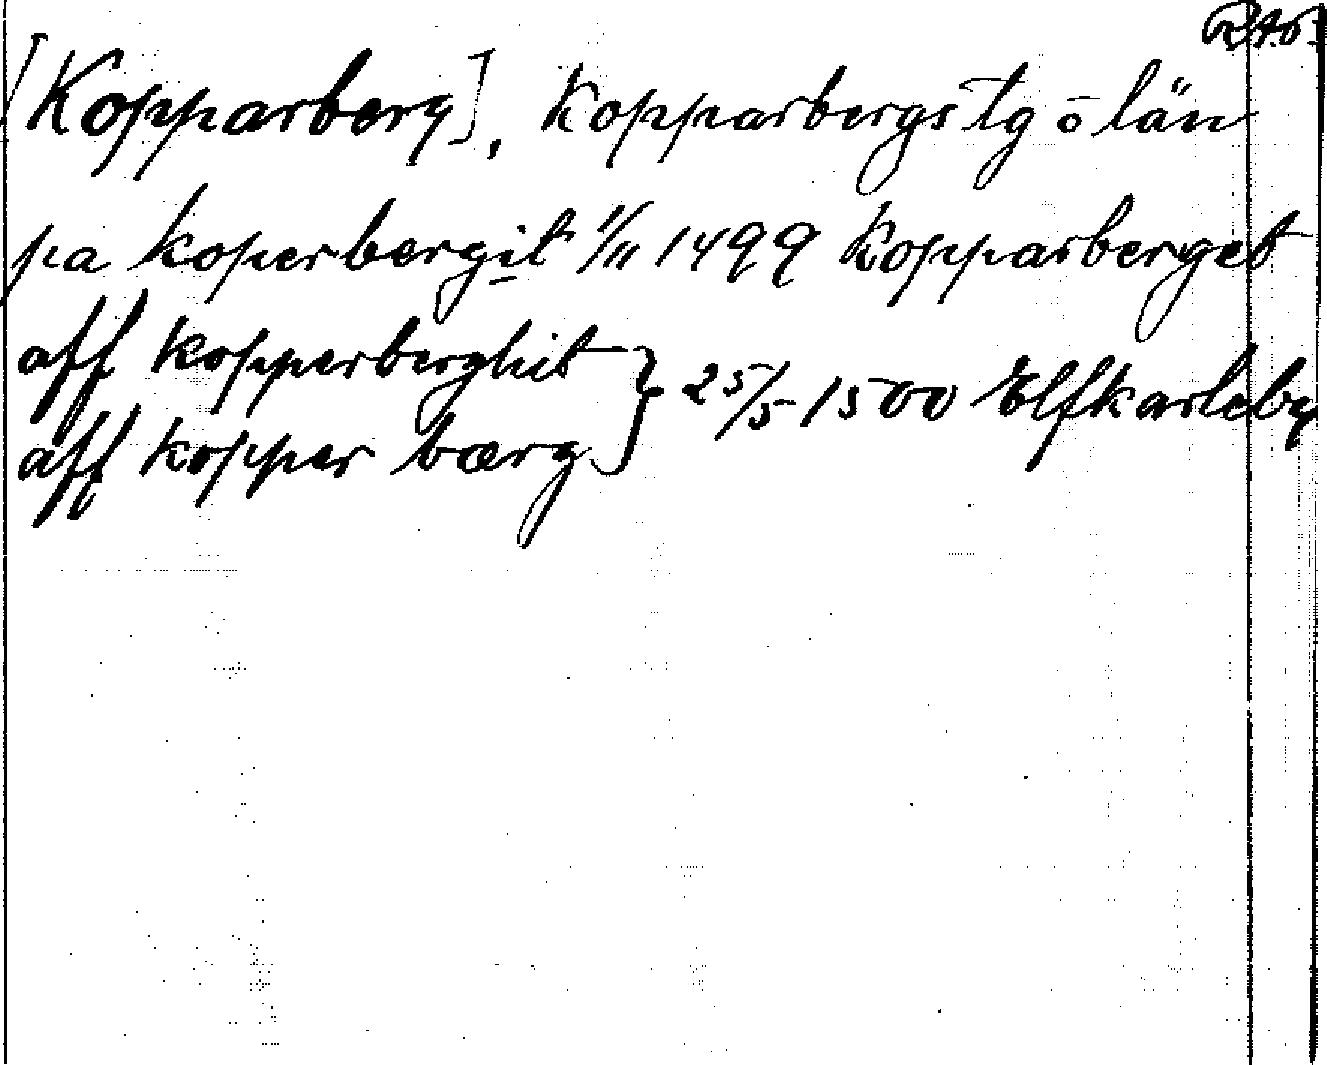 RAÖ.
[Kopparberg], Kopparbergs tg o län
pa koperbergit 1/11 1499 Kopparberget
aff kopperberghit } 25/5 1500 Elfkarleby
aff kopper bærg